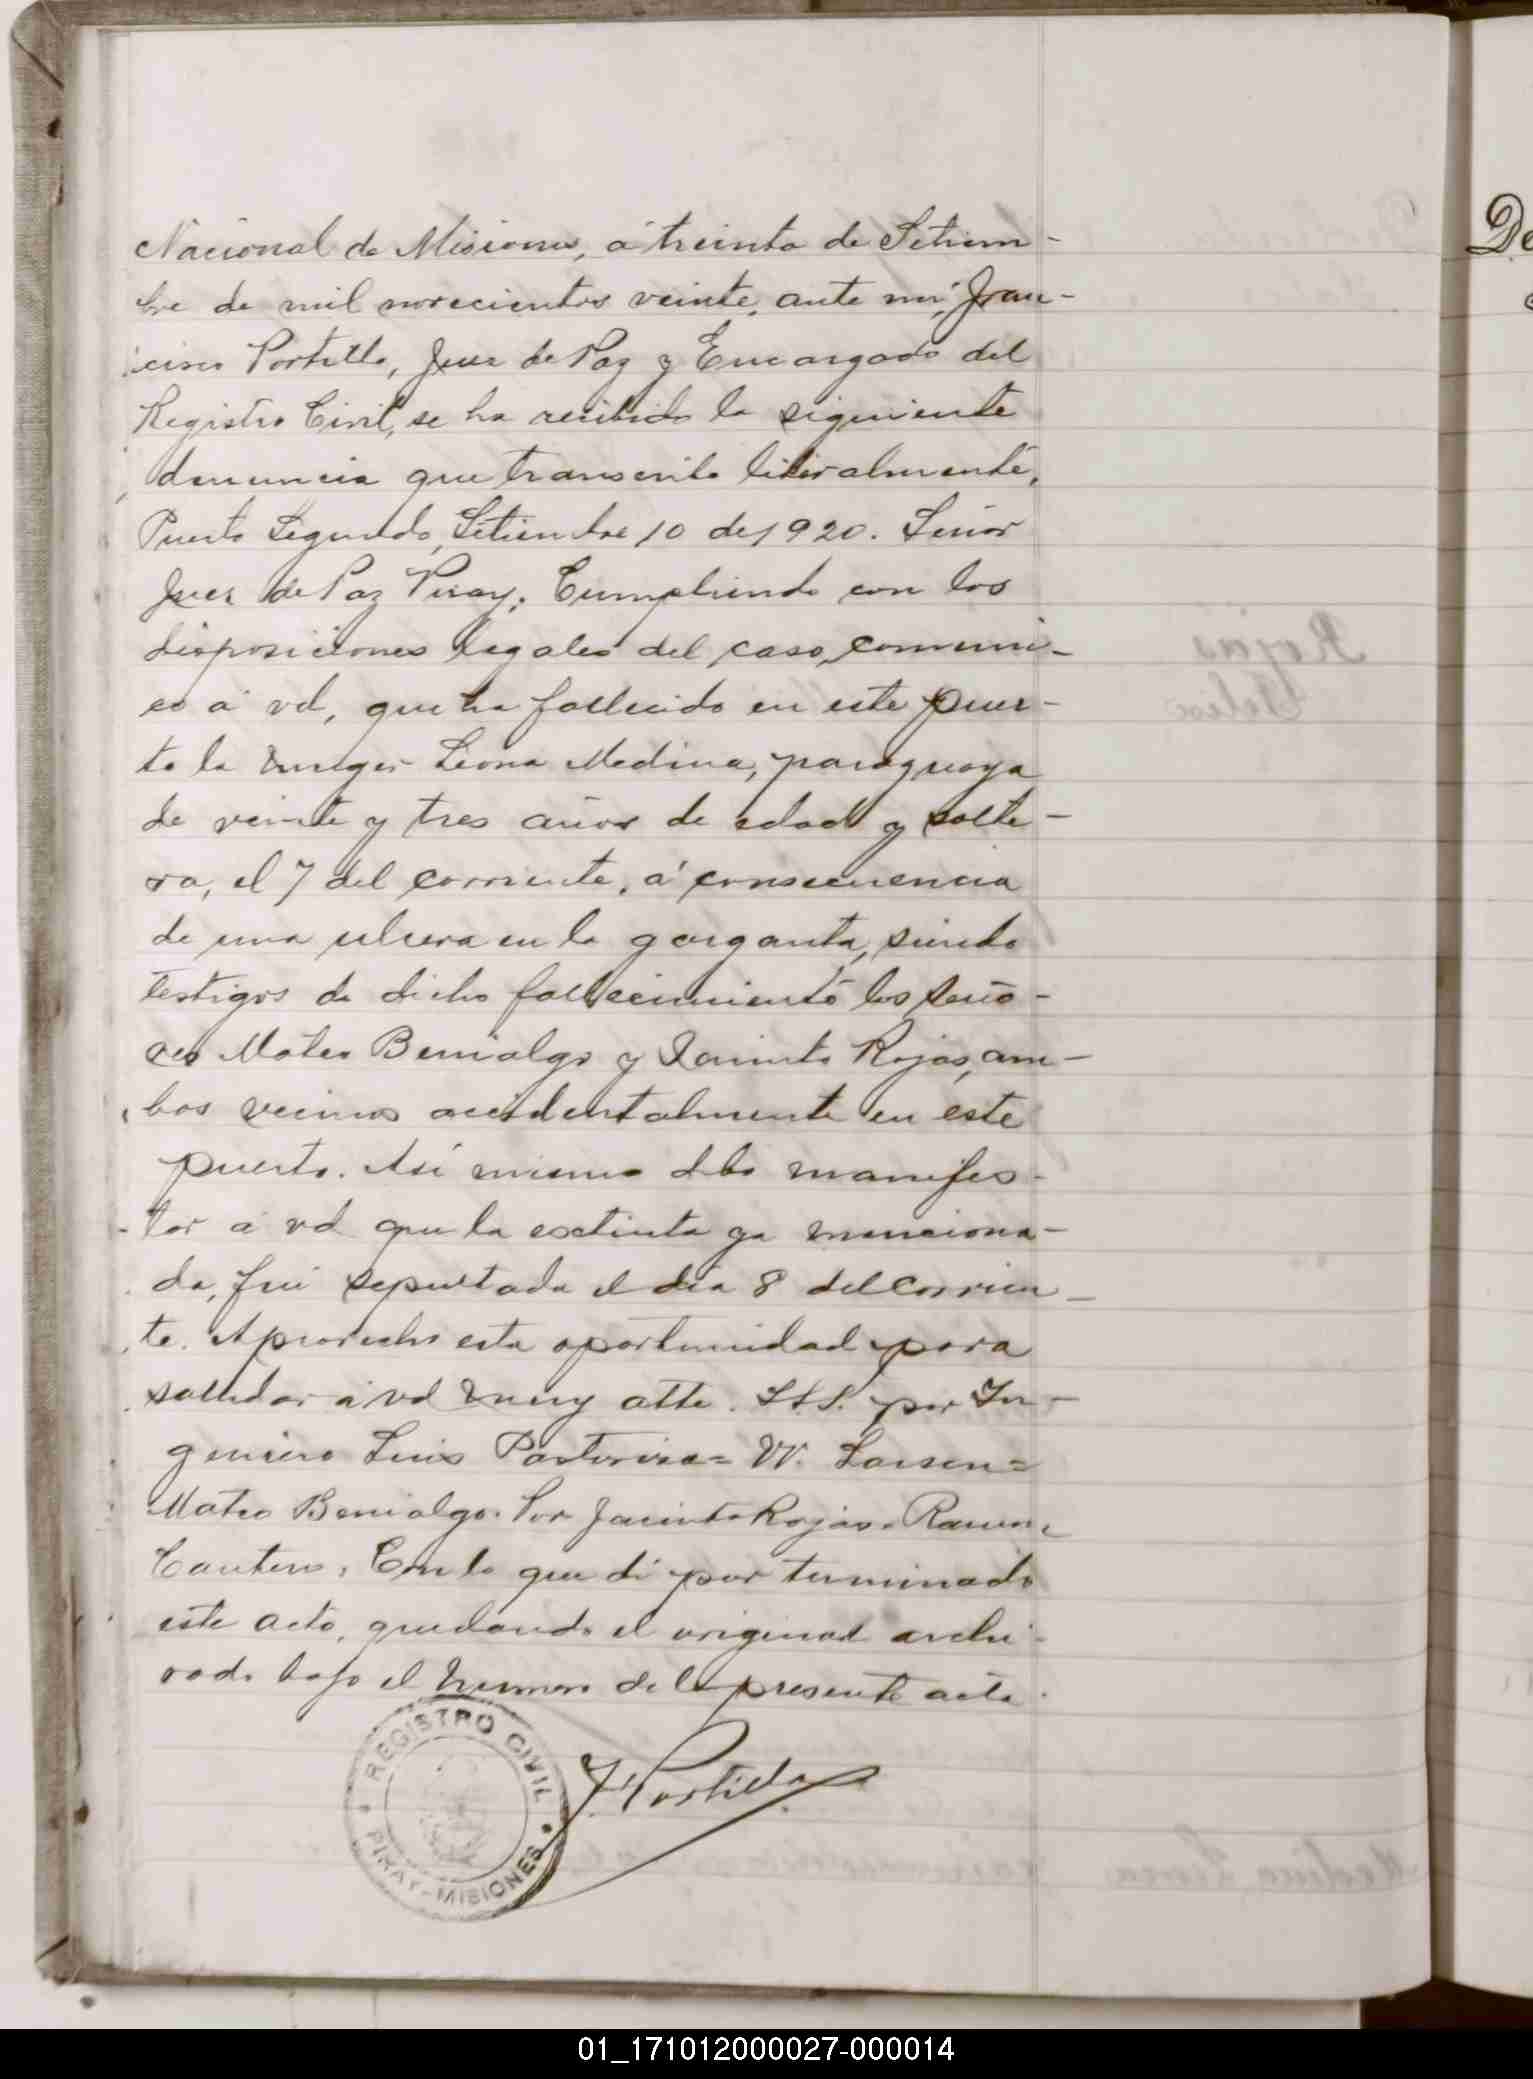 Nacional de Misiones, á treinta de Setiem-
bre de mil novecientos veinte, ante mi, Fran-
cisco Portillo, Juez de Paz y Encargado del
Registro Civil, se ha recibido la siguiente
denuncia que transcribo literalmente,
Puerto Segundo, Setiembre 10 de 1920. Señor
Juez de Paz Piray. Cumpliendo con los
disposiciones legales del caso, comuni-
co á vd, que ha fallecido en este puer-
to la muger Liona Medina, paraguaya
de veinte y tres años de edad y solte-
ra, el 7 del corriente, á consecuencia
de una ulcera en la garganta, siendo
testigos de dicho fallecimiento los seño-
res Mateo Benialgo y Jacinto Rojas, am-
bos vecinos accidentalmente en este
puerto. Asi mismo debo manifes-
tar á vd que la extinta ya menciona-
da, fué sepultada el dia 8 del corrien-
te. Aprovecho esta oportunidad para
saludar á vd muy atte. S.S.S. por In-
geniero Luis Pastoriza= W. Larsen=
Mateo Benialgo. Por Jacinto Rojas. Ramon
Cantero. Con lo que di por terminado
este acto, quedando el original archi-
vado bajo el numero de la presente acta.
F. Portillo
REGISTRO CIVIL
PIRAY-MISIONES
De
Rojas
Medina Liona
01_171012000027-000014